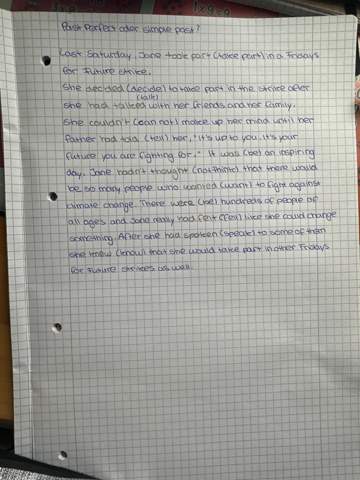 Past Perfect oder simple past?
Last Saturday, Jane took part (take part) in a Fridays
for Future strike.
She decided (decide) to take part in the strike after
(talk)
she had talked with her friends and her family.
She couldn't (can not) make up her mind until her
father had told (tell) her, "It's up to you. It's your
future you are fighting for." It was (be) an inspiring
day. Jane hadn't thought (not think) that there would
be so many people who wanted (want) to fight against
climate change. There were (be) hundreds of people of
all ages and Jane really had felt (feel) like she could change
something. After she had spoken (speak) to some of them
she knew (know) that she would take part in other Fridays
for Future strikes as well.